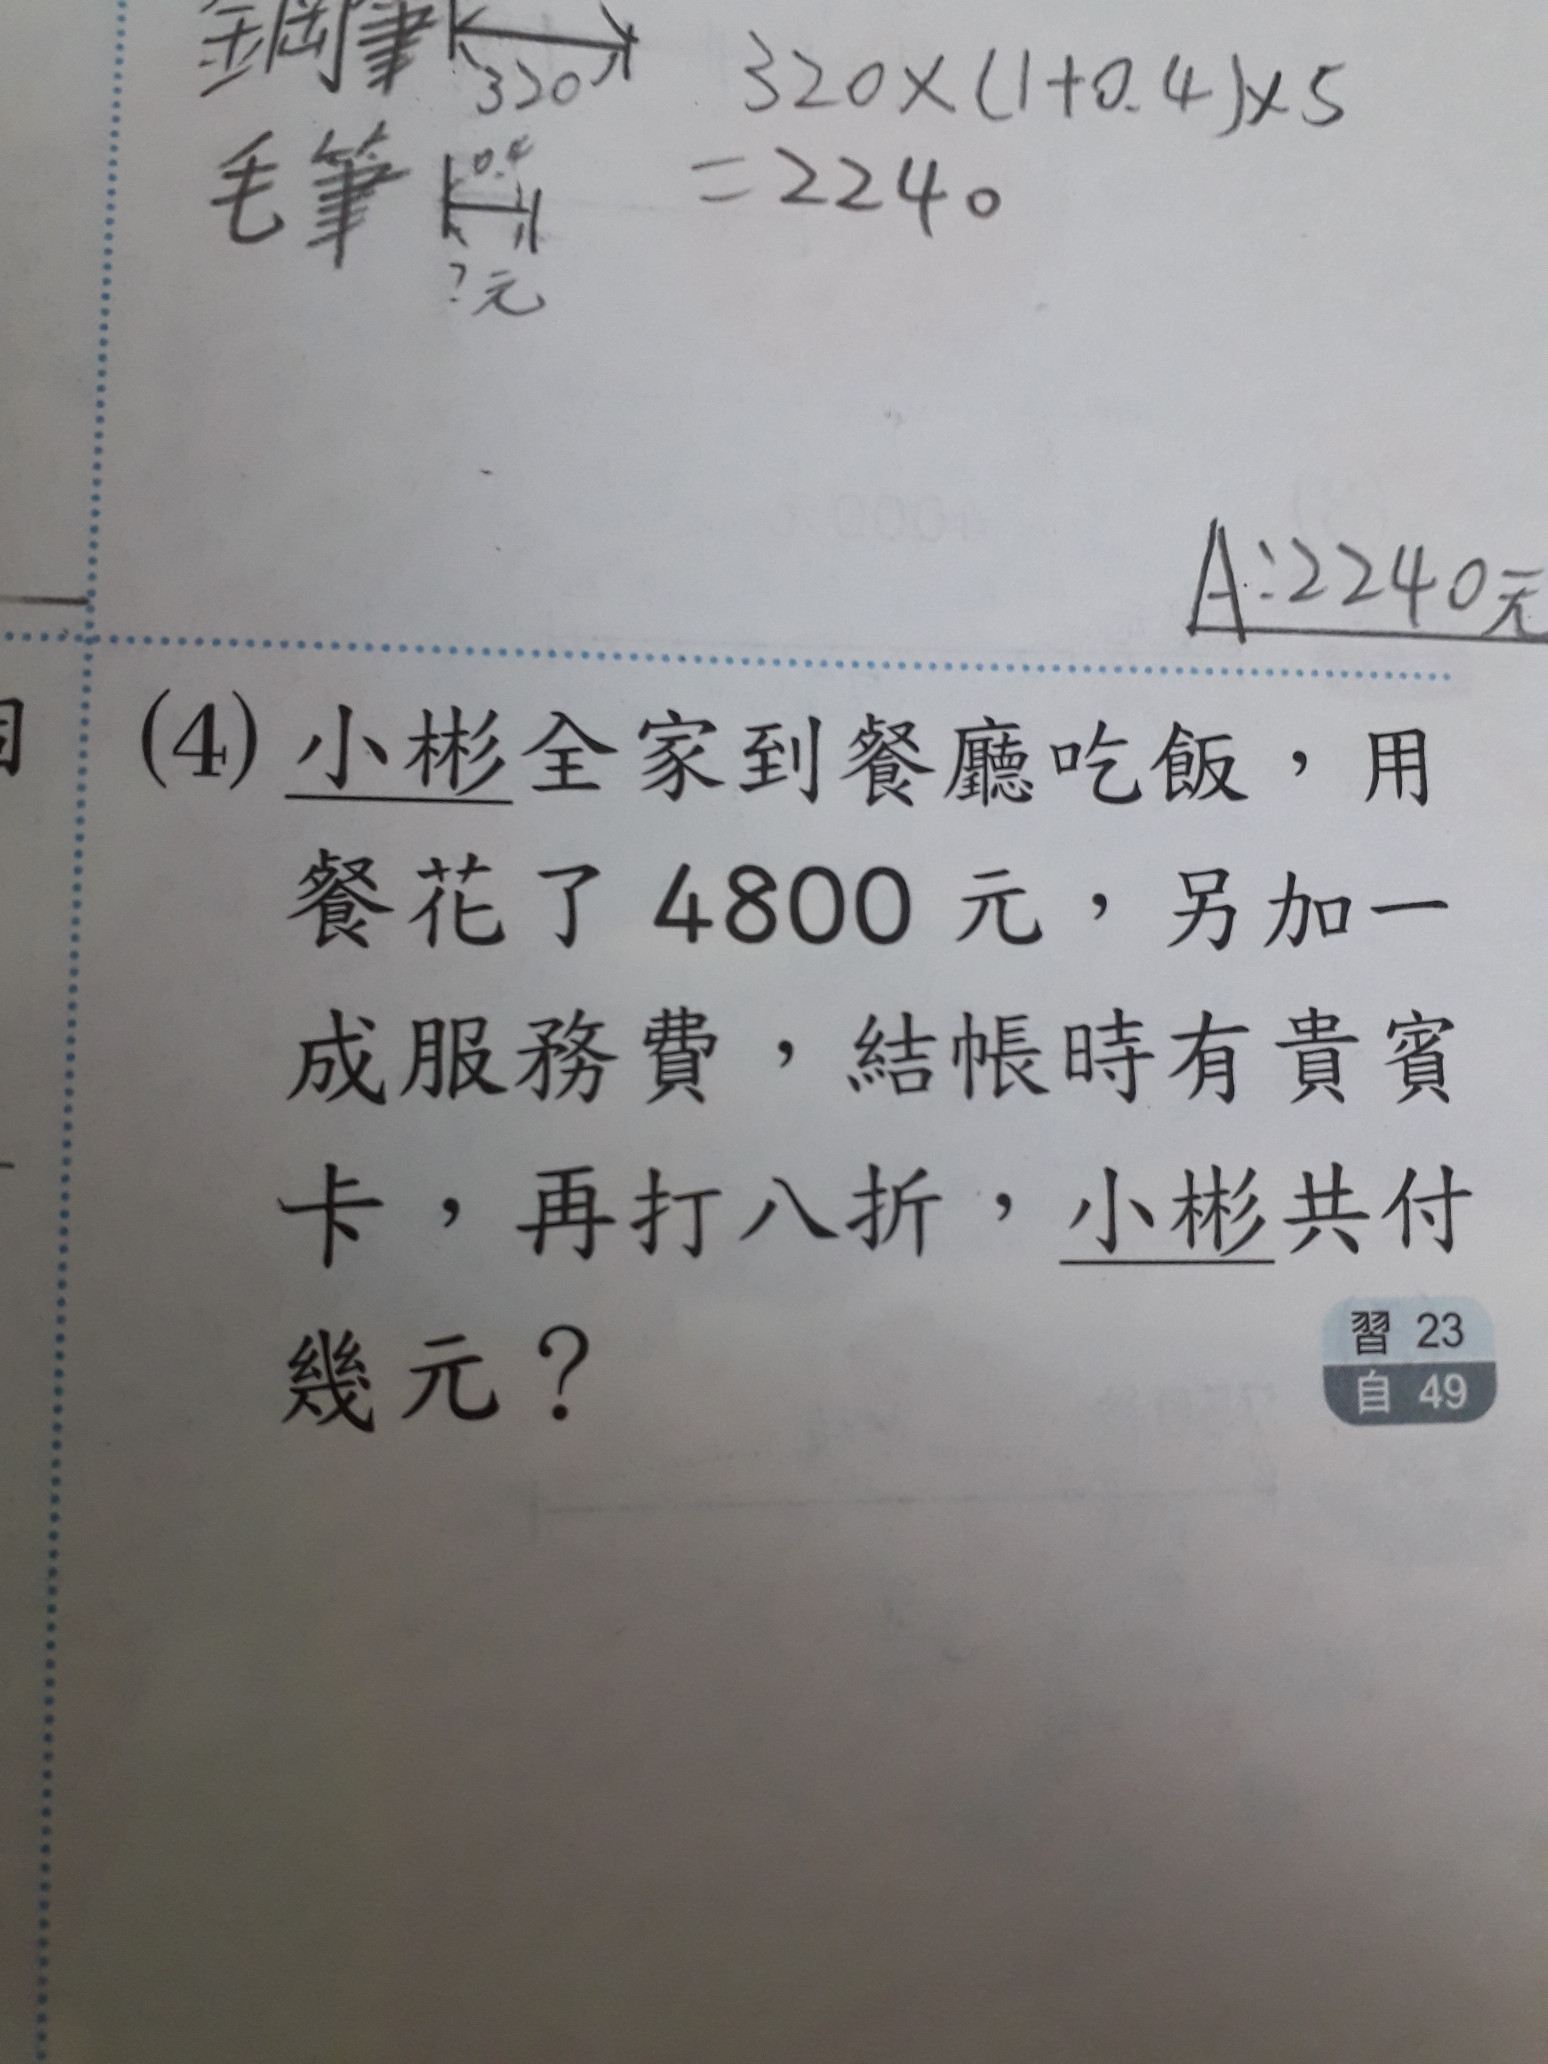 鋼筆 320 320×(1+0.4)×5
毛筆 0.4 =2240
?元
A:2240元
(4) 小彬全家到餐廳吃飯，用
餐花了 4800 元，另加一
成服務費，結帳時有貴賓
卡，再打八折，小彬共付
幾元？
習 23
自 49